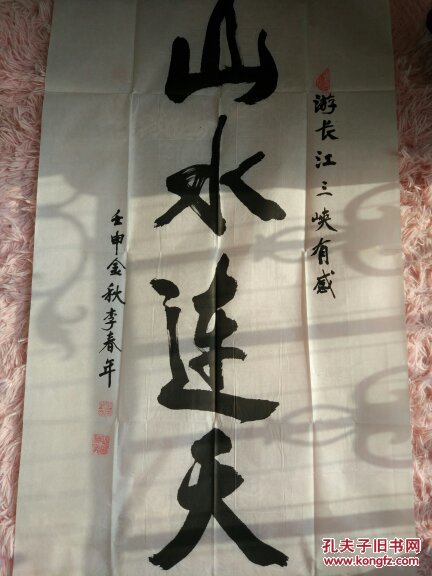 游长江三峡有感
山水连天
壬申金秋李春年
孔夫子旧书网
kongfz.com